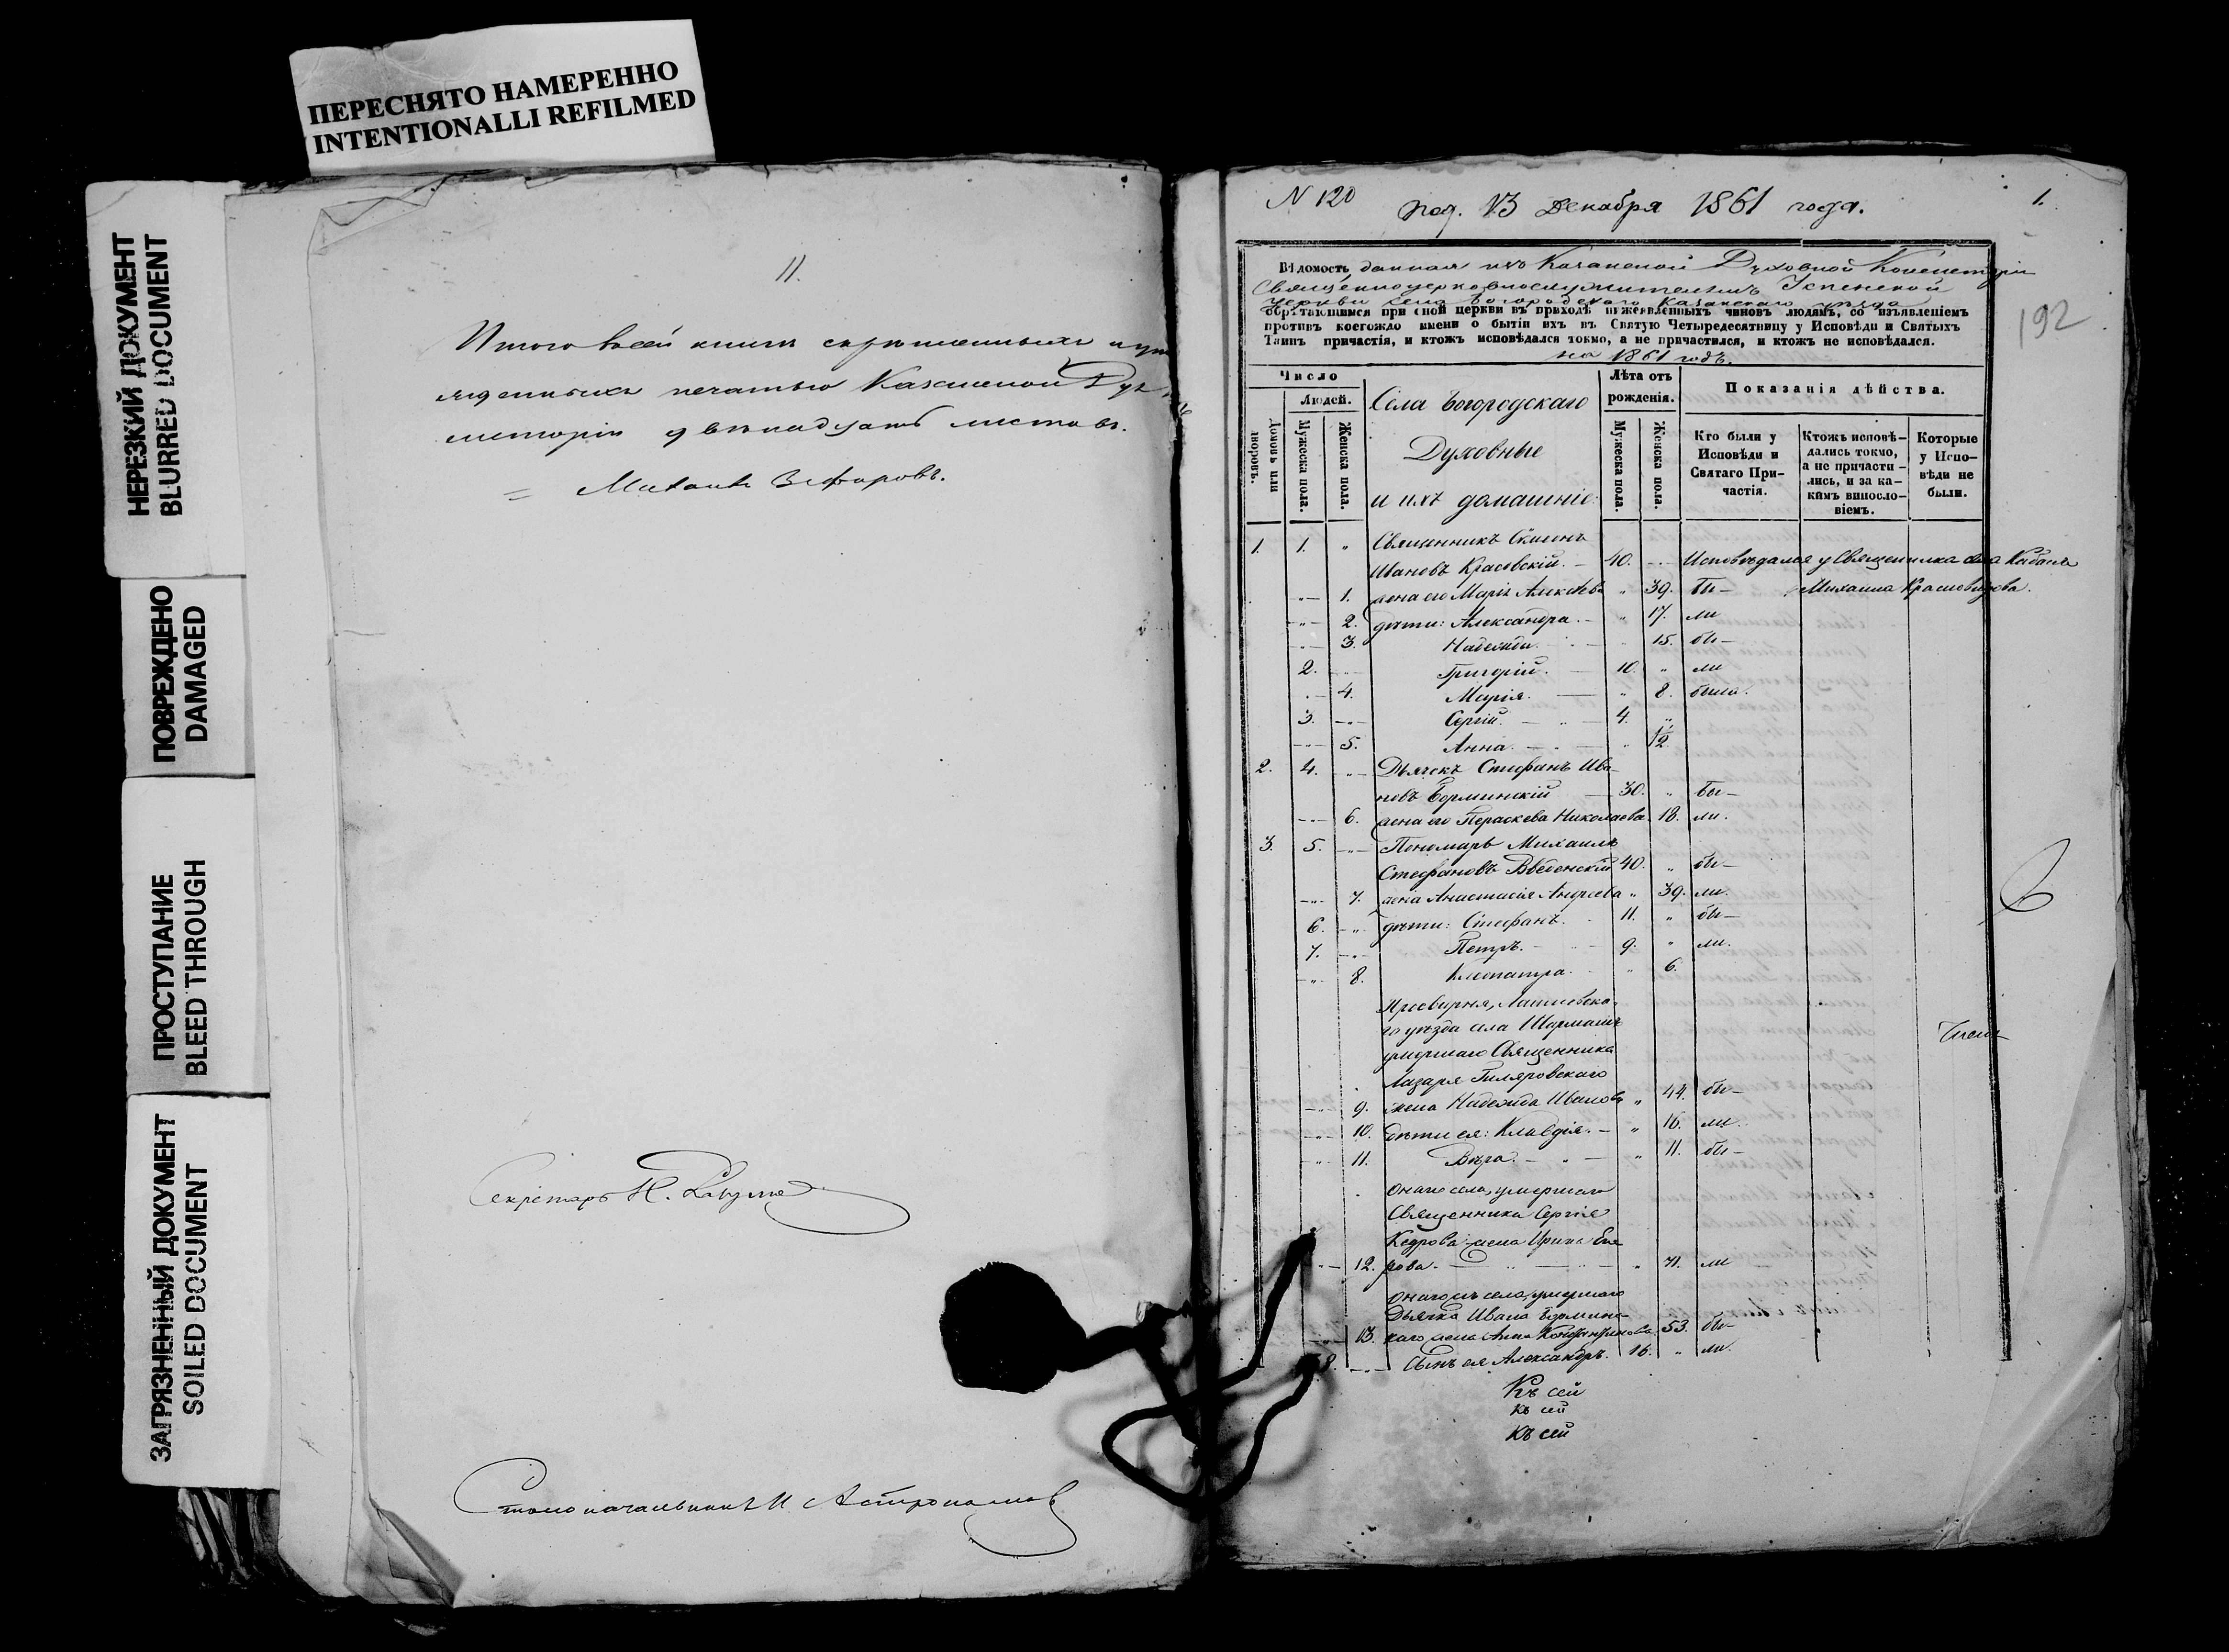 ПЕРЕСНЯТО НАМЕРЕННО
INTENTIONALLI REFILMED
НЕРЕЗКИЙ ДОКУМЕНТ
BLURRED DOCUMENT
ПОВРЕЖДЕНО
DAMAGED
ПРОСТУПАНИЕ
BLEED THROUGH
ЗАГРЯЗНЕННЫЙ ДОКУМЕНТ
SOILED DOCUMENT
11.
Итого въ сей книгѣ скрѣпленныхъ
печатью Казанской Дух.
листовъ.
Михаилъ
Секретарь Н.
Столоначальникъ Н. Астрономовъ
N 120
под. 13 Декабря 1861 года.
1.
192
Вѣдомость данная изъ Казанской Духовной Консисторіи
Священноцерковнослужителямъ Успенской
церкви села Богородскаго Казанскаго уѣзда
обрѣтающимся при оной церкви въ приходѣ нижеявленныхъ чиновъ людямъ, со изъявленіемъ
противъ коегождо имени о бытіи ихъ въ Святую Четыредесятницу у Исповѣди и Святыхъ
Таинъ причастія, и ктожъ исповѣдался токмо, а не причастился, и ктожъ не исповѣдался.
на 1861 годъ.
Число
Людей.
Домовъ или дворовъ.
Мужеска пола.
Женска пола.
Села Богородскаго
Духовные
и ихъ домашніе:
Лѣта отъ рожденія.
Мужеска пола.
Женска пола.
Показанія дѣйства.
Кто были у
Исповѣди и
Святаго При-
частія.
Ктожъ исповѣ-
дались токмо,
а не причасти-
лись, и за ка-
кимъ винosло-
віемъ.
Которые
у Испо-
вѣди не
были.
1. 1. " Священникъ
Ивановъ Красовскій. 40. Исповѣдался у Священника села
1. жена его Марія Алексѣева " 39. бы- Михаила
2. дѣти: Александра. " 17. ли
3. Надежда. 15. бы-
2. Григорій. 10. " ли
4. Марія. " 8. была.
3. Сергій. 4. "
5. Анна. " 1½
2. 4. " Дьячекъ Стефанъ Ива-
новъ Борминскій 30. " бы-
6. жена его Параскева Николаева 18. ли.
3. 5. " Пономарь Михаилъ
Стефановъ Введенскій 40. " бы-
7. жена Анастасія Андреева " 39. ли.
6. " дѣти: Стефанъ. 11. " бы-
7. Петръ. 9. " ли.
8. Клеопатра. " 6.
Просвирня, Лаишевска-
го уѣзда села
умершаго Священника
Лазаря Гиляровскаго
9. жена Надежда Иванова " 44. бы-
10. дѣти ея: Клавдія. " 16. ли.
11. Вѣра. " 11. бы-
онаго села, умершаго
Священника Сергія
Кедрова жена Ирина Его-
12. рова. " 71. ли
онагожъ села, умершаго
Дьячка Ивана Бормин-
13. скаго жена Анна Константинова 53. бы-
8. Сынъ ея Александръ. 16. " ли.
Къ сей
къ сей
къ сей